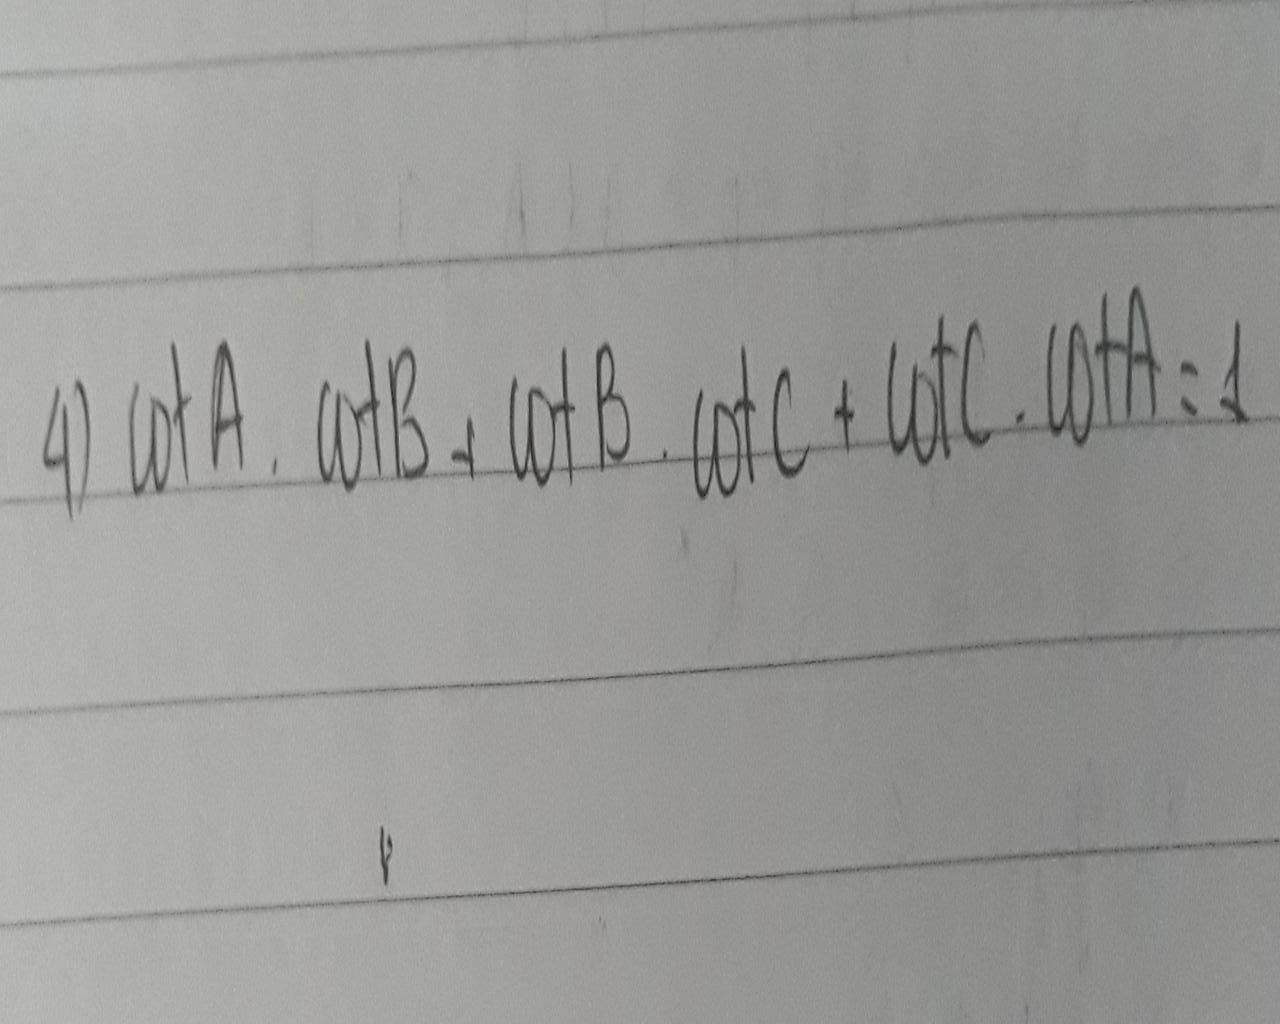 4) cot A . cot B + cot B . cot C + cot C . cot A = 1